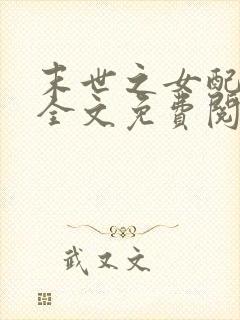 末世之女配
全文免费阅
武又文